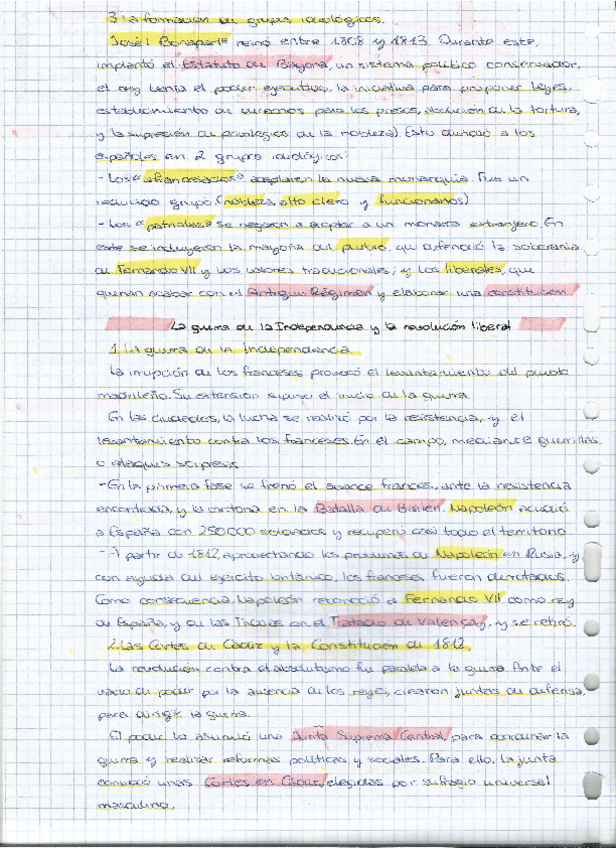 3. La formación de grupos ideológicos.
José I Bonaparte reinó entre 1808 y 1813. Durante este,
implantó el Estatuto de Bayona, un sistema político conservador,
el rey tenía el poder ejecutivo, la iniciativa para proponer leyes,
establecimiento de derechos para los presos, abolición de la tortura,
y la supresión de privilegios de la nobleza) Esto dividió a los
españoles en 2 grupos ideológicos:
- Los «afrancesados» aceptaron la nueva monarquía. Fue un
reducido grupo. (nobleza, alto clero y funcionarios)
- Los «patriotas» se negaron a aceptar a un monarca extranjero. En
este se incluyeron la mayoría del pueblo, que defendió la soberanía
de Fernando VII y los valores tradicionales; y los liberales, que
querían acabar con el Antiguo Régimen y elaborar una constitución.
La guerra de la Independencia y la revolución liberal
1. La guerra de la Independencia.
La irrupción de los franceses provocó el levantamiento del pueblo
madrileño. Su extensión supuso el inicio de la guerra.
En las ciudades, la lucha se realizó por la resistencia, y el
levantamiento contra los franceses. En el campo, mediante guerrillas
o ataques sorpresa
- En la primera fase se frenó el avance francés, ante la resistencia
encontrada, y la victoria en la Batalla de Bailén. Napoleón acudió
a España con 250.000 soldados y recuperó casi todo el territorio
- A partir de 1812, aprovechando los problemas de Napoleón en Rusia, y
con ayuda del ejército británico, los franceses fueron derrotados.
Como consecuencia, Napoleón reconoció a Fernando VII como rey
de España, y de las Indias en el Tratado de Valençay, y se retiró.
2. Las Cortes de Cádiz y la Constitución de 1812.
La revolución contra el absolutismo fue paralela a la guerra. Ante el
vacío de poder por la ausencia de los reyes, crearon juntas de defensa,
para dirigir la guerra.
El poder lo asumió una Junta Suprema Central, para coordinar la
guerra y realizar reformas políticas y sociales. Para ello, la junta
convocó unas Cortes en Cádiz, elegidas por sufragio universal
masculino.